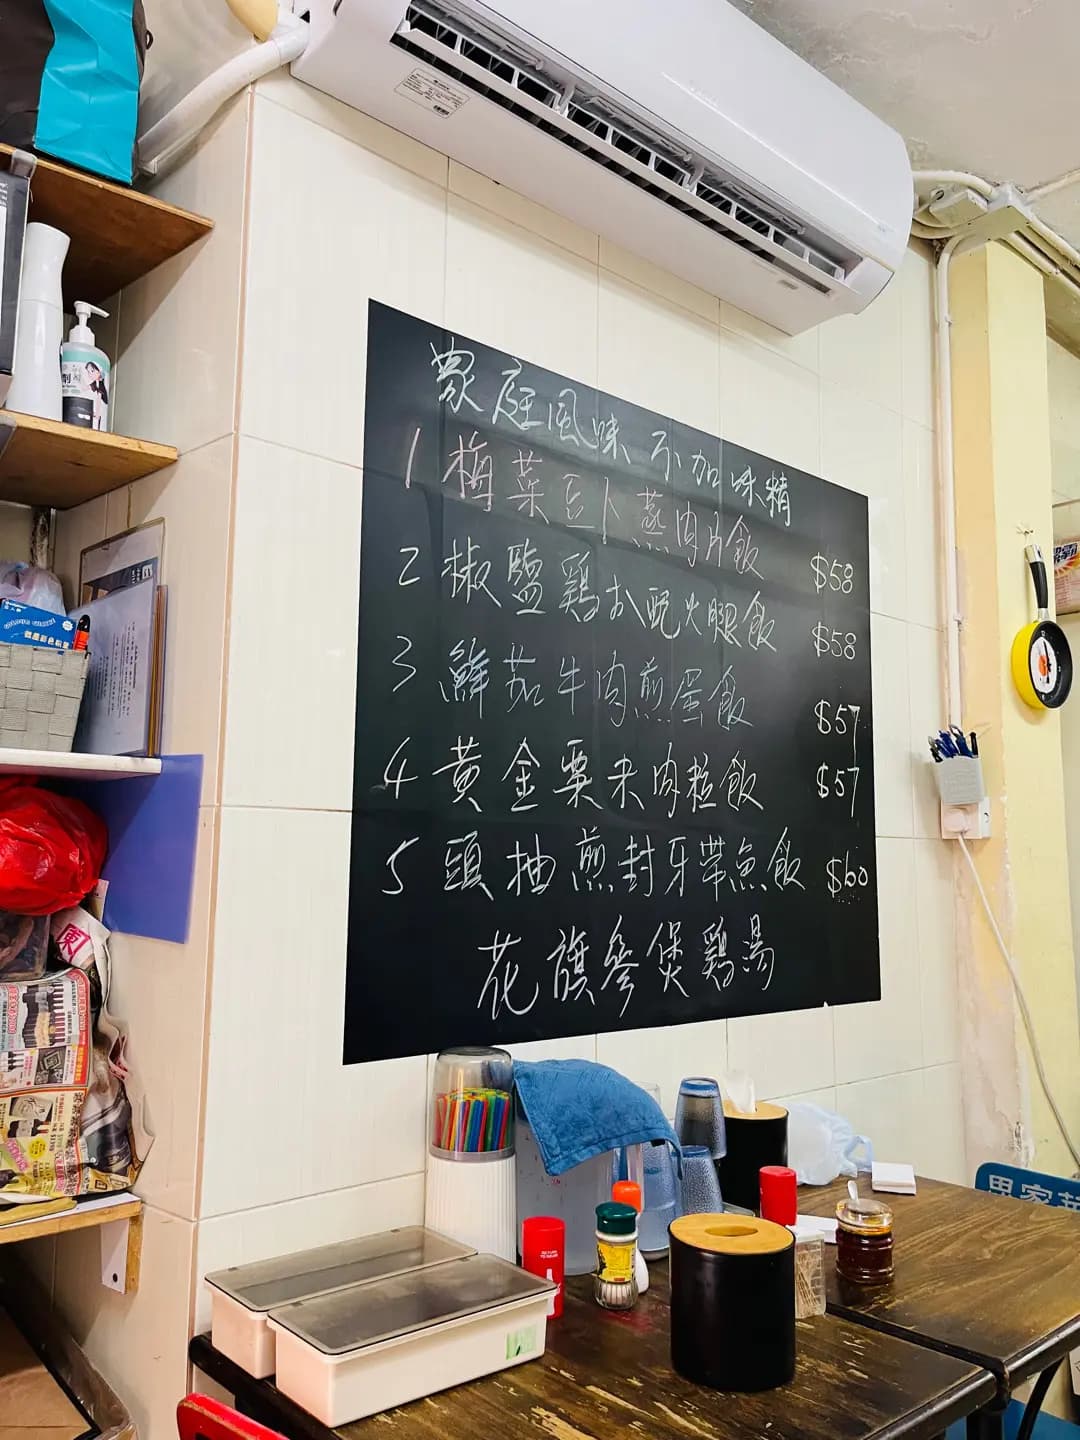 家庭風味 不加味精
1 梅菜豆卜蒸肉片飯 $58
2 椒鹽鷄扒配火腿飯 $58
3 鮮茄牛肉煎蛋飯 $57
4 黃金粟米肉粒飯 $57
5 頭抽煎封牙帶魚飯 $60
花旗參煲鷄湯